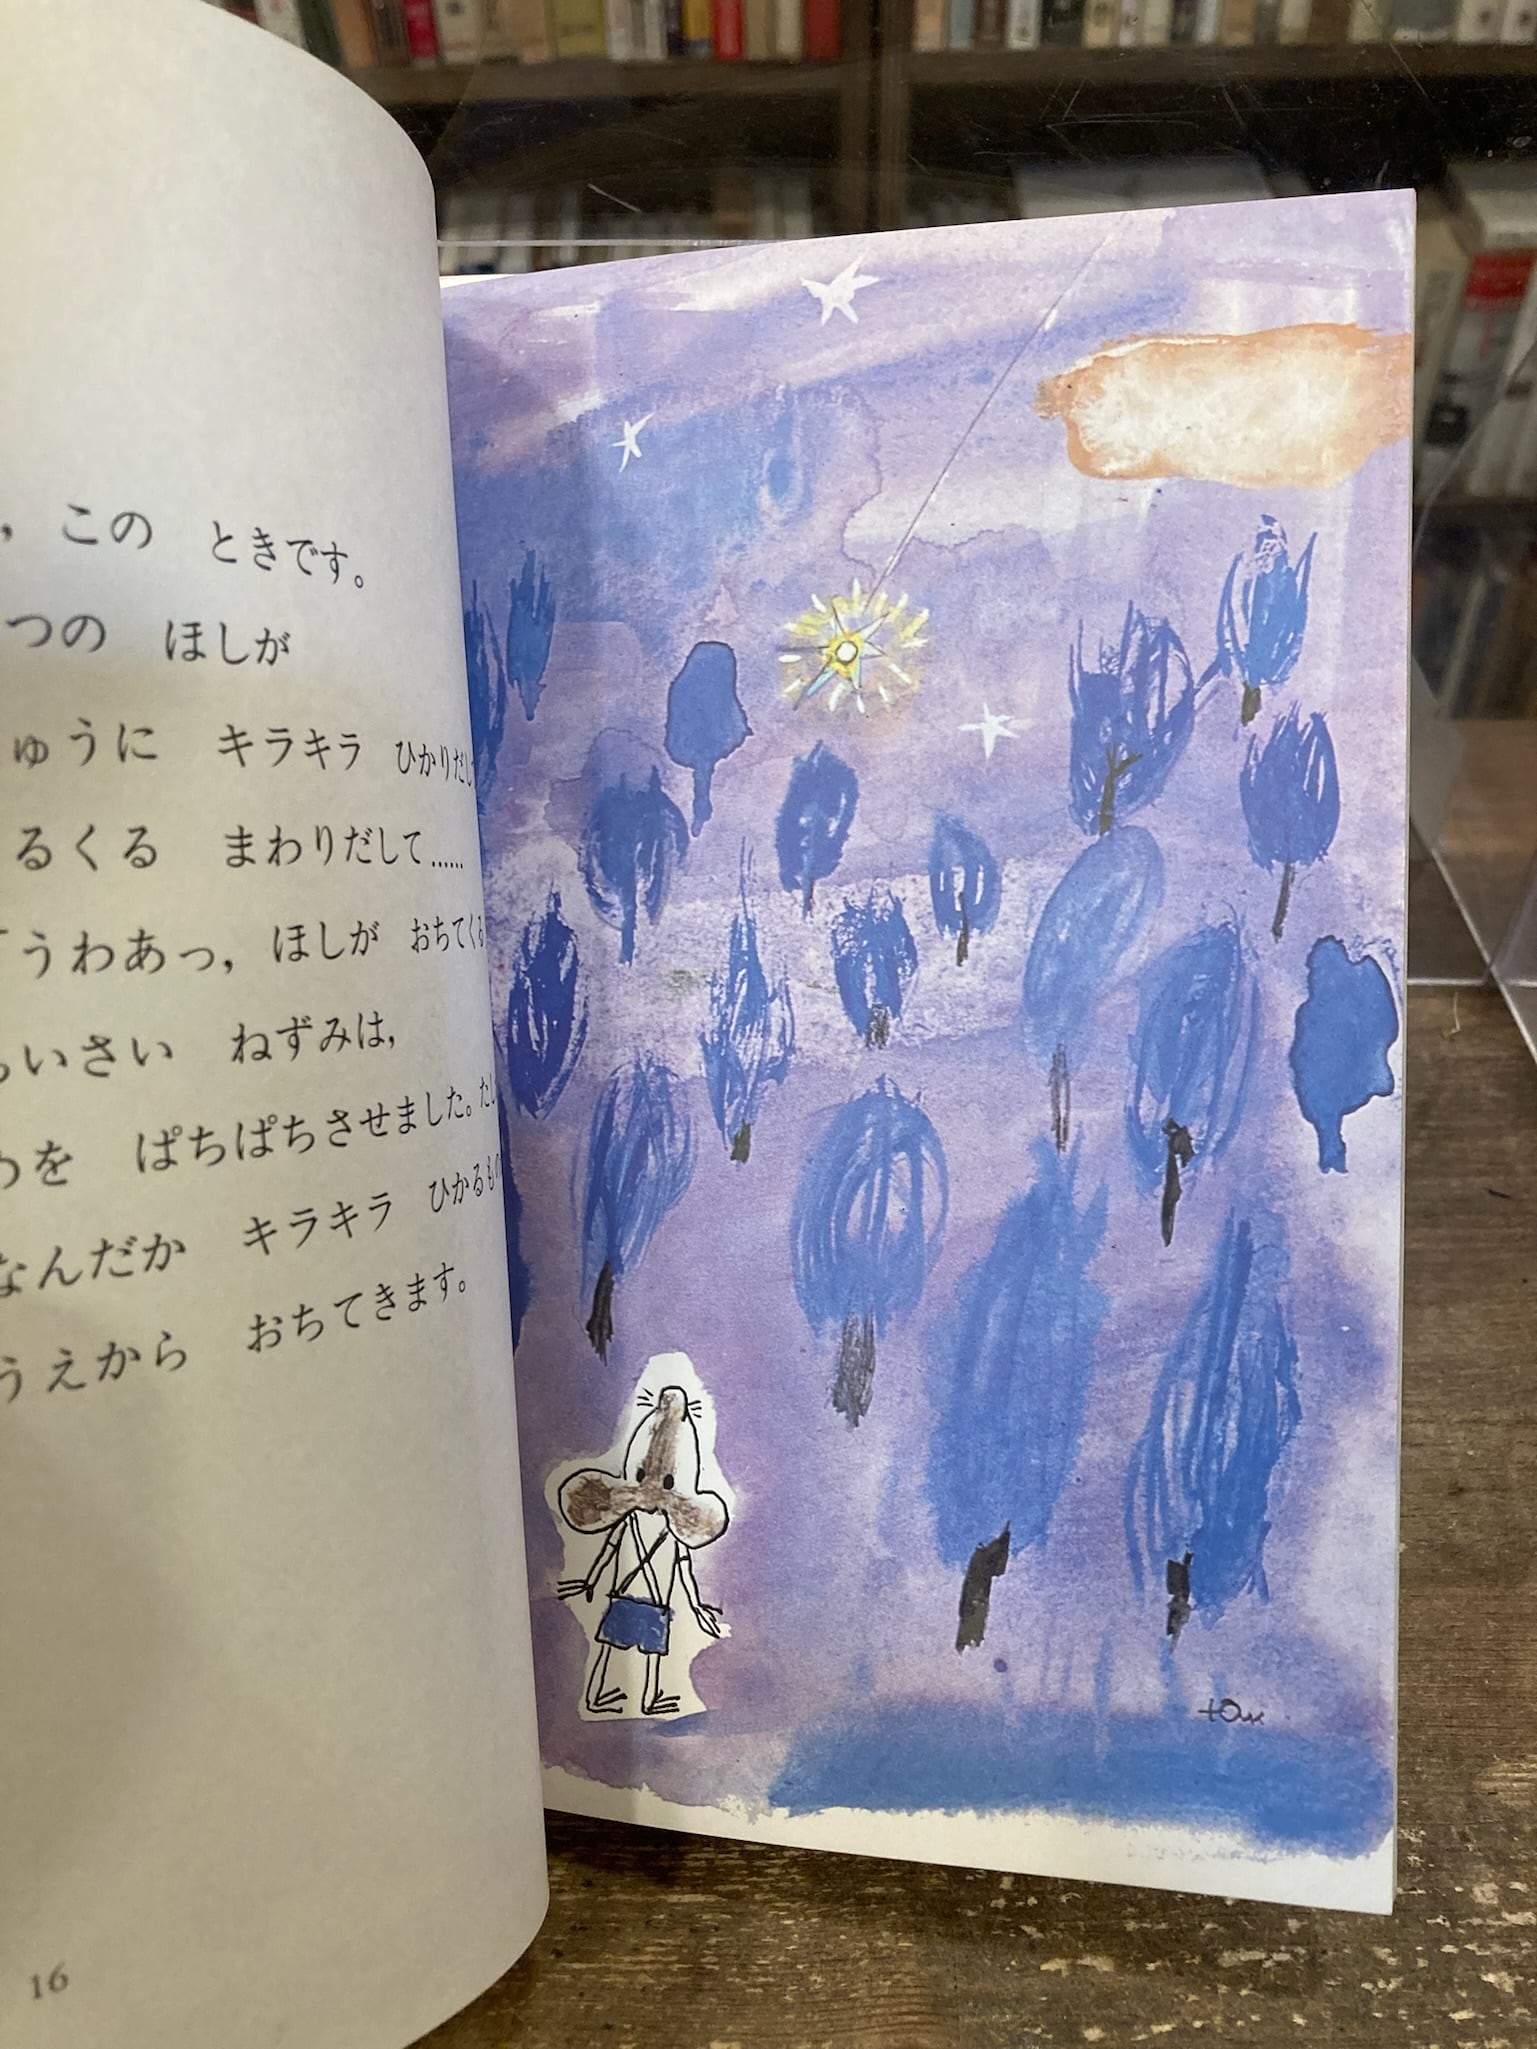 ，この　ときです。
つの　ほしが
ゅうに　キラキラ　ひかりだして
るくる　まわりだして……
うわあっ，ほしが　おちてくる
いさい　ねずみは，
を　ぱちぱちさせました。たし
なんだか　キラキラ　ひかるもの
うえから　おちてきます。
16